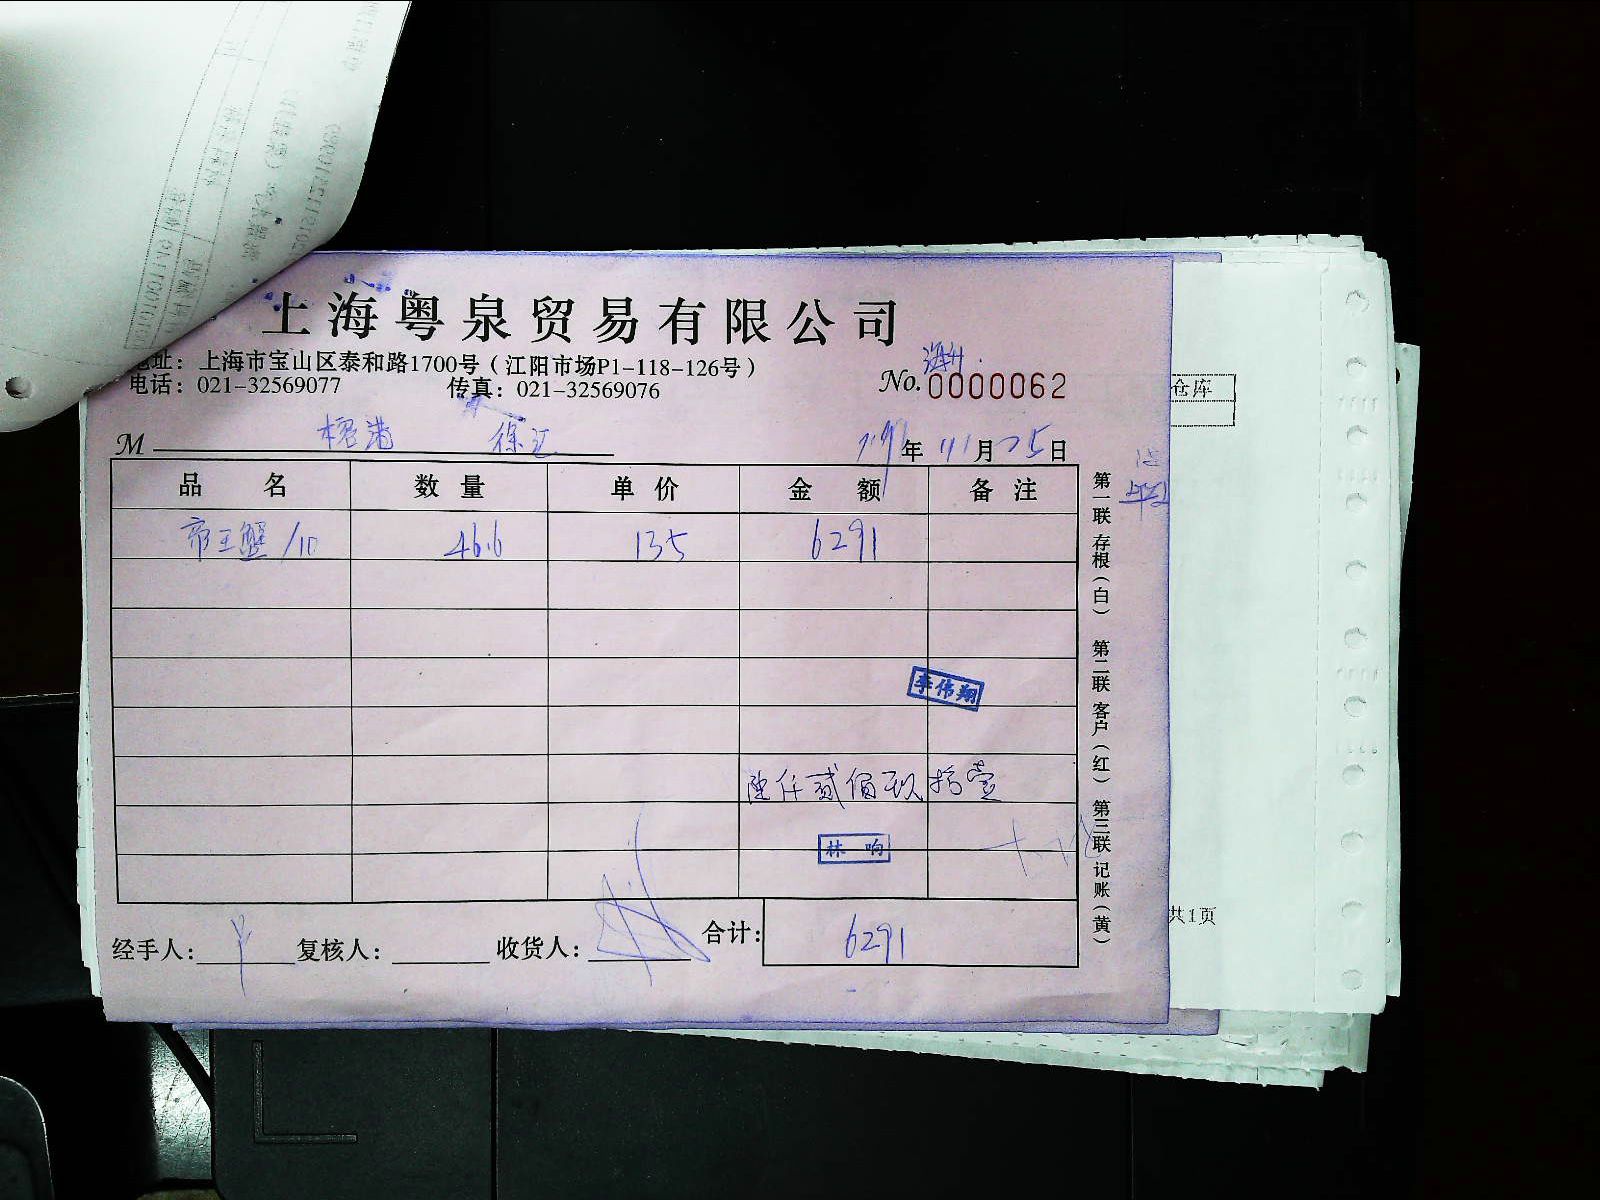 上海粤泉贸易有限公司
地址：上海市宝山区泰和路1700号（江阳市场P1-118-126号）
电话：021-32569077 传真：021-32569076
No. 0000062
M 榕港 徐汇
年 11月25日
品名 数量 单价 金额 备注
帝王蟹/10 46.6 135 6291
李伟翔
陆仟贰佰玖拾壹
林响
经手人： 复核人： 收货人： 合计： 6291
第一联存根（白） 第二联客户（红） 第三联记账（黄）
仓库
共1页